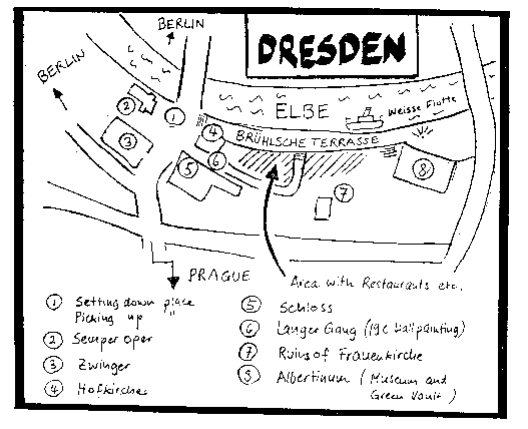 BERLIN
BERLIN
DRESDEN
ELBE
Weisse Flotte
BRÜHLSCHE TERRASSE
1
2
3
4
5
6
7
8
PRAGUE
Area with Restaurants etc.
1 Setting down place
Picking up "
2 Semper oper
3 Zwinger
4 Hofkirche
5 Schloss
6 Langer Gang (19C Wallpainting)
7 Ruins of Frauenkirche
8 Albertinum (Museum and
Green Vault)